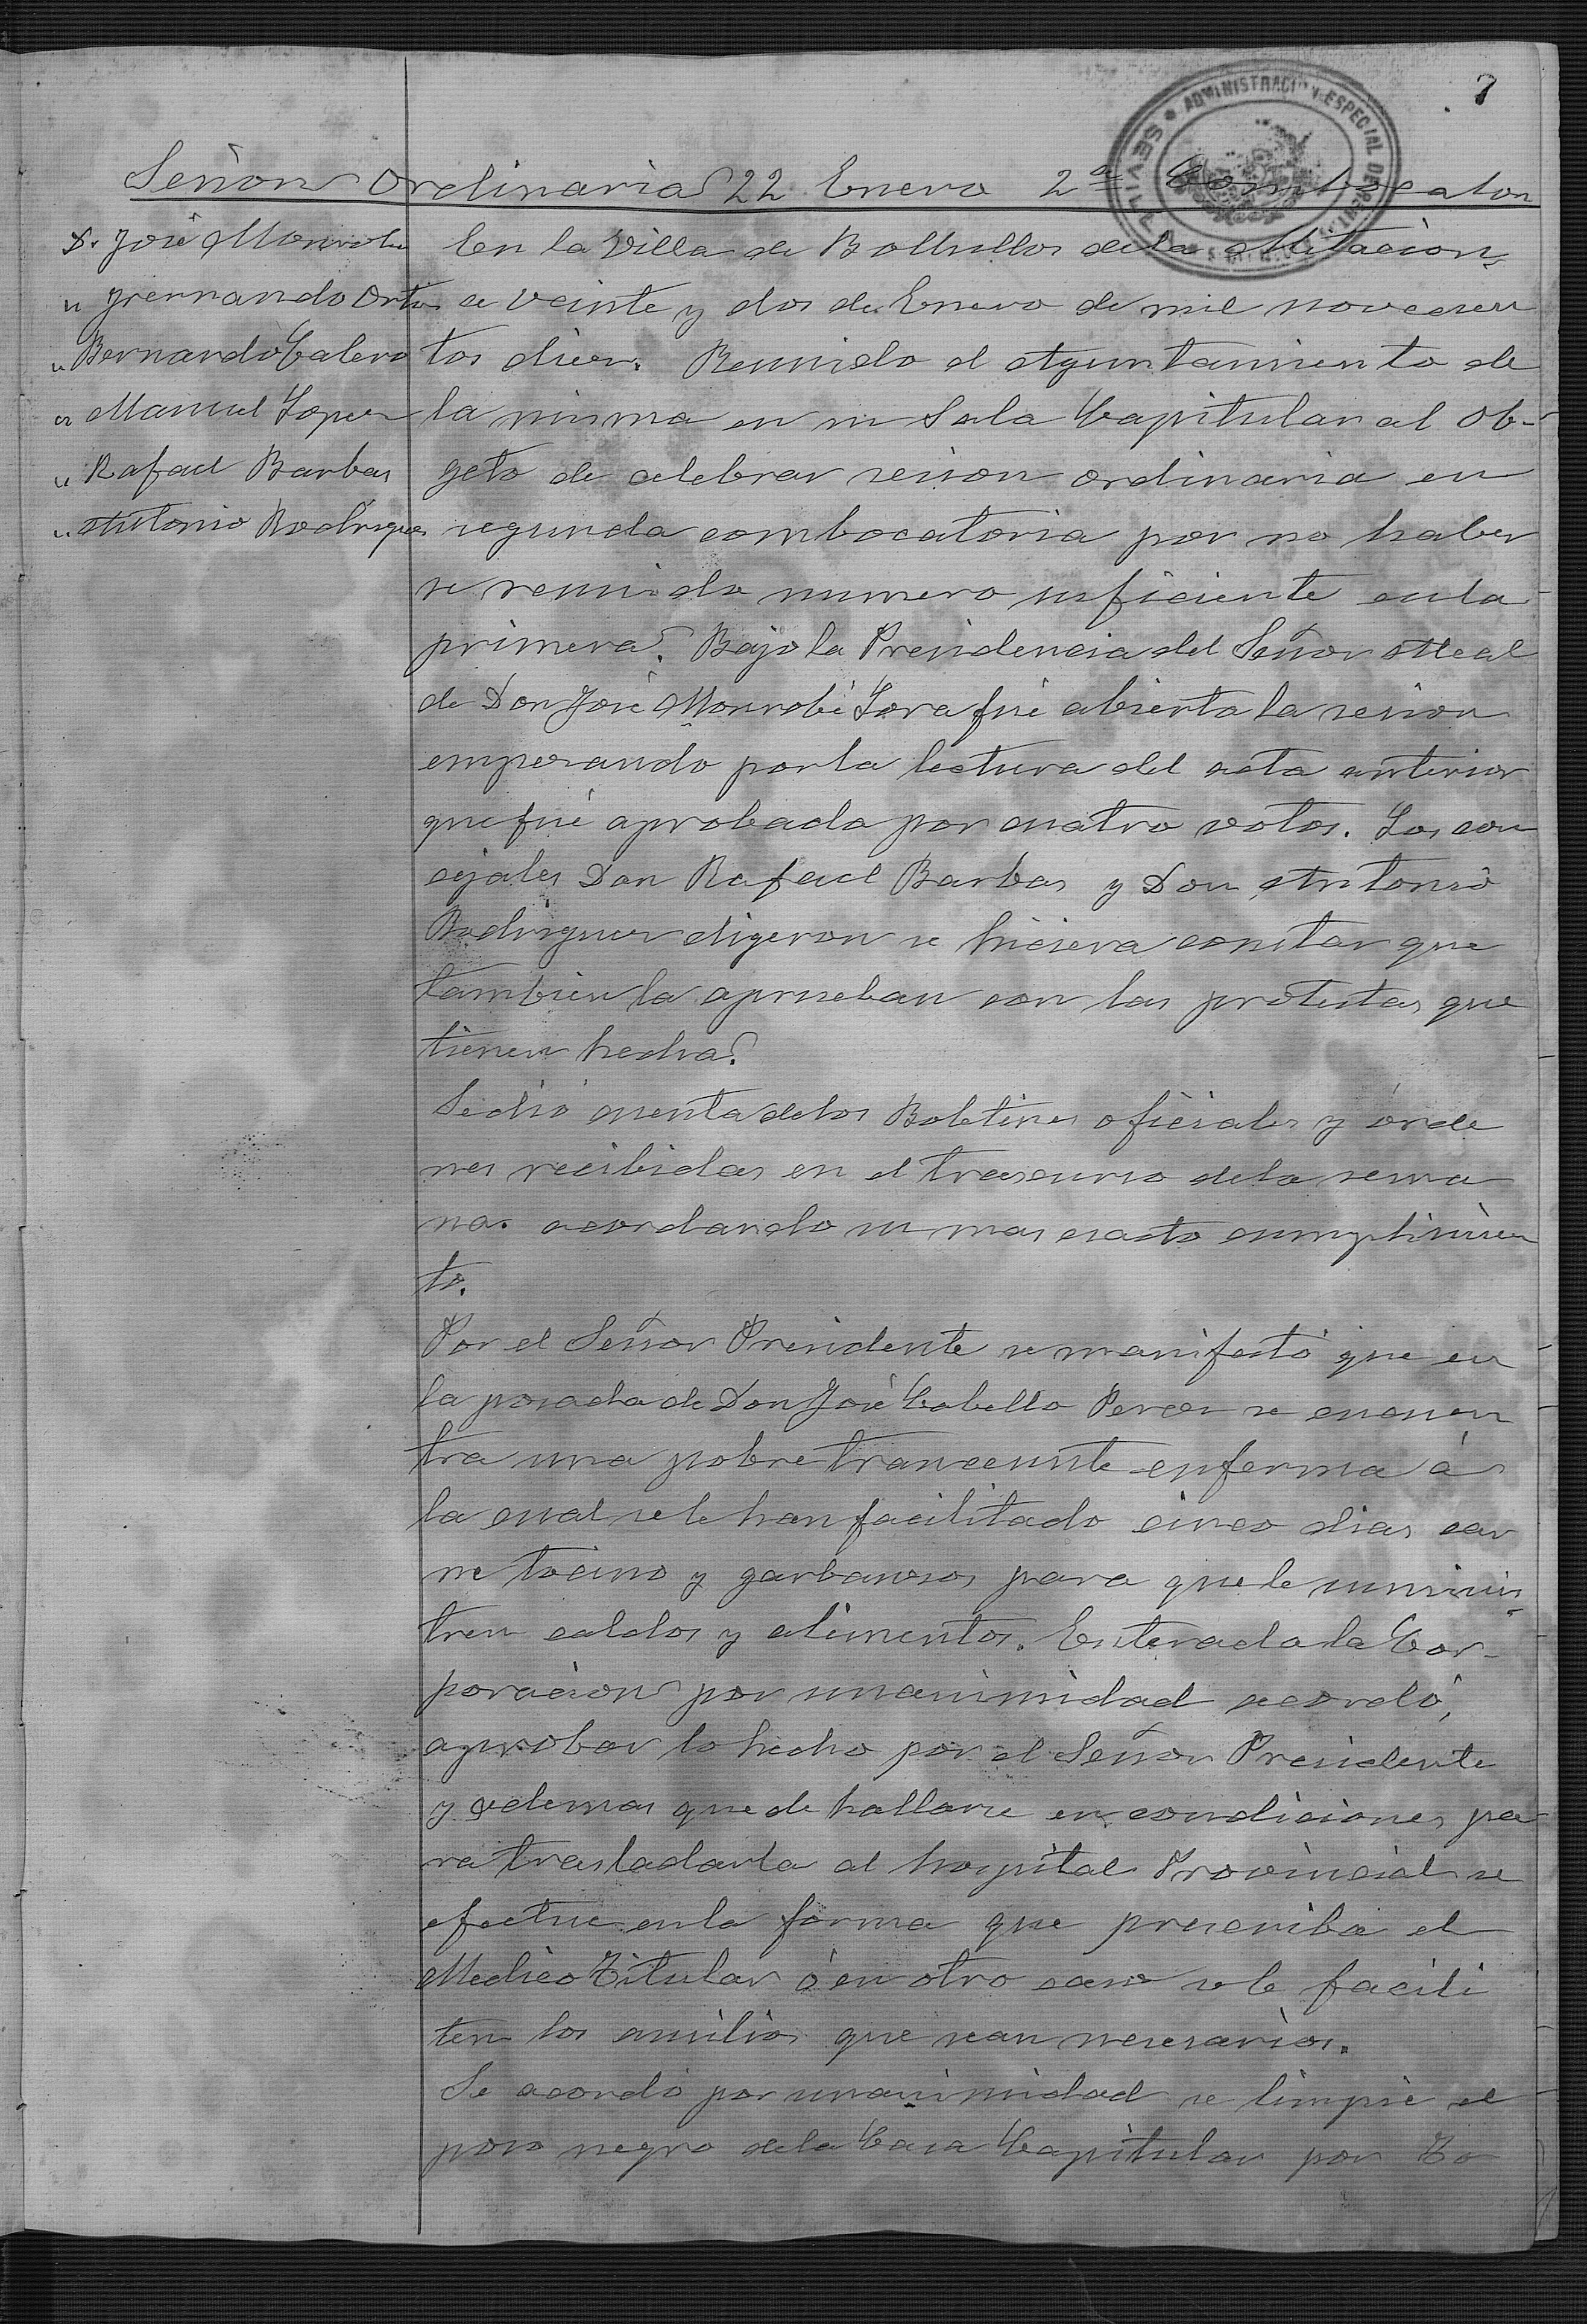 7
ADMINISTRACION ESPECIAL DE RENTAS
SEVILLA
Sesion Ordinaria 22 Enero 2ª Combocaton
D. José Monrobé
" Fernando Ortiz
" Bernardo Calero
" Manuel Lopez
" Rafael Barbas
" Antonio Rodriguez
En la Villa de Bollullos de la Mitacion,
a veinte y dos de Enero de mil novecien
tos diez. Reunido el Ayuntamiento de
la misma en su Sala Capitular al Ob-
geto de celebrar sesion ordinaria en
segunda combocatoria por no haber
se reunido numero suficiente en la
primera. Bajo la Presidencia del Señor Alcal
de Don José Monrobé Lora fué abierta la sesion
empezando por la lectura del acta anterior
que fué aprobada por cuatro votos. Los con
cejales Don Rafael Barbas y Don Antonio
Rodriguez digeron se hiciera constar que
tambien la aprueban con las protestas que
tienen hecha.
Se dió cuenta de los Boletines oficiales y órde
nes recibidas en el trascurso de la sema
na. acordando su mas exacto cumplimien
to.
Por el Señor Presidente se manifestó que en
la posada de Don José Cabello Perez se encuen
tra una pobre transeunte enferma á
la cual se le han facilitado cinco dias car
ne tocino y garbanzos para que le suminis-
tren caldos y alimentos. Enterada la Cor-
poracion por unanimidad acordó,
aprobar lo hecho por el Señor Presidente
y ademas que de hallarse en condiciones pa
ra trasladarla al hospital Provincial se
efectue en la forma que prescriba el
Medico Titular ó en otro caso se le facili
ten los ausilios que sean nesesarios.
Se acordó por unanimidad se limpie el
poso negro de la Casa Capitular por To